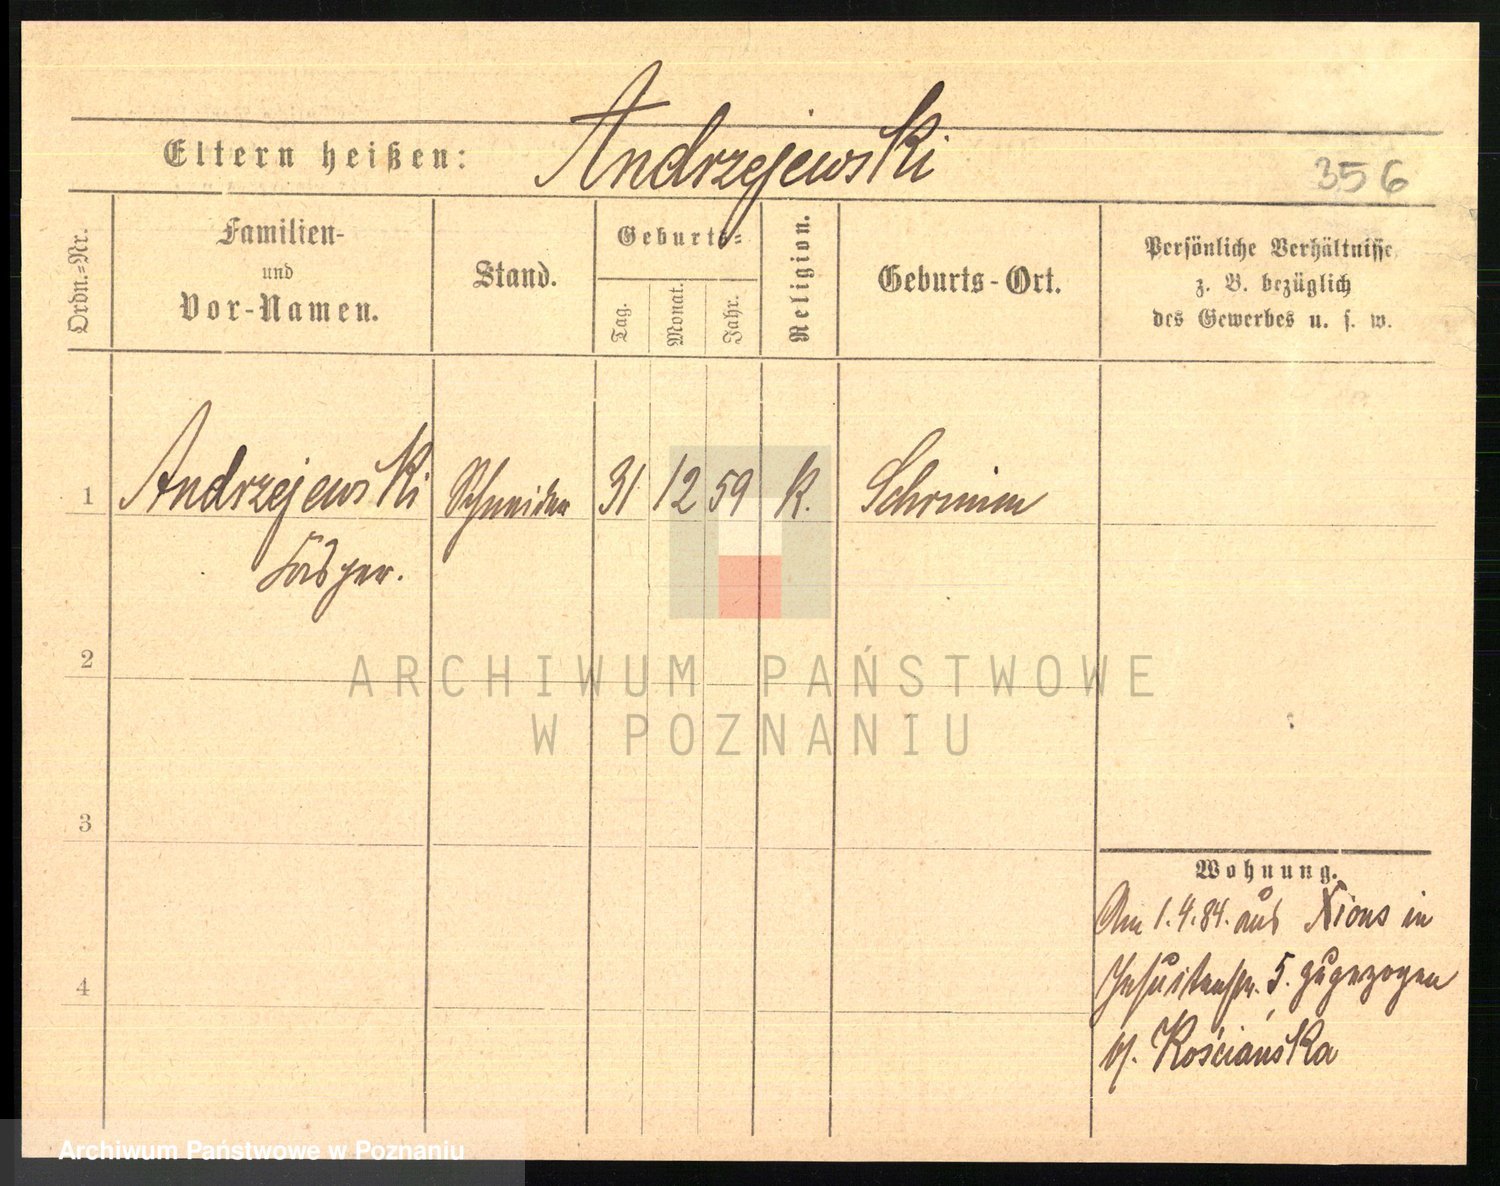 Eltern heißen: Andrzejewski
356
Ordn.=Nr.
Familien-
und
Vor-Namen.
Stand.
Geburts=
Tag.
Monat.
Jahr.
Religion.
Geburts-Ort.
Persönliche Verhältnisse,
z. B. bezüglich
des Gewerbes u. s. w.
1 Andrzejewski Schneider 31 12 59 k. Schrimm
Casper.
2
3
4
Wohnung.
Am 1.4.84. aus Xions in
Jesuitenstr. 5. zugezogen
Kościańska
ARCHIWUM PAŃSTWOWE
W POZNANIU
Archiwum Państwowe w Poznaniu